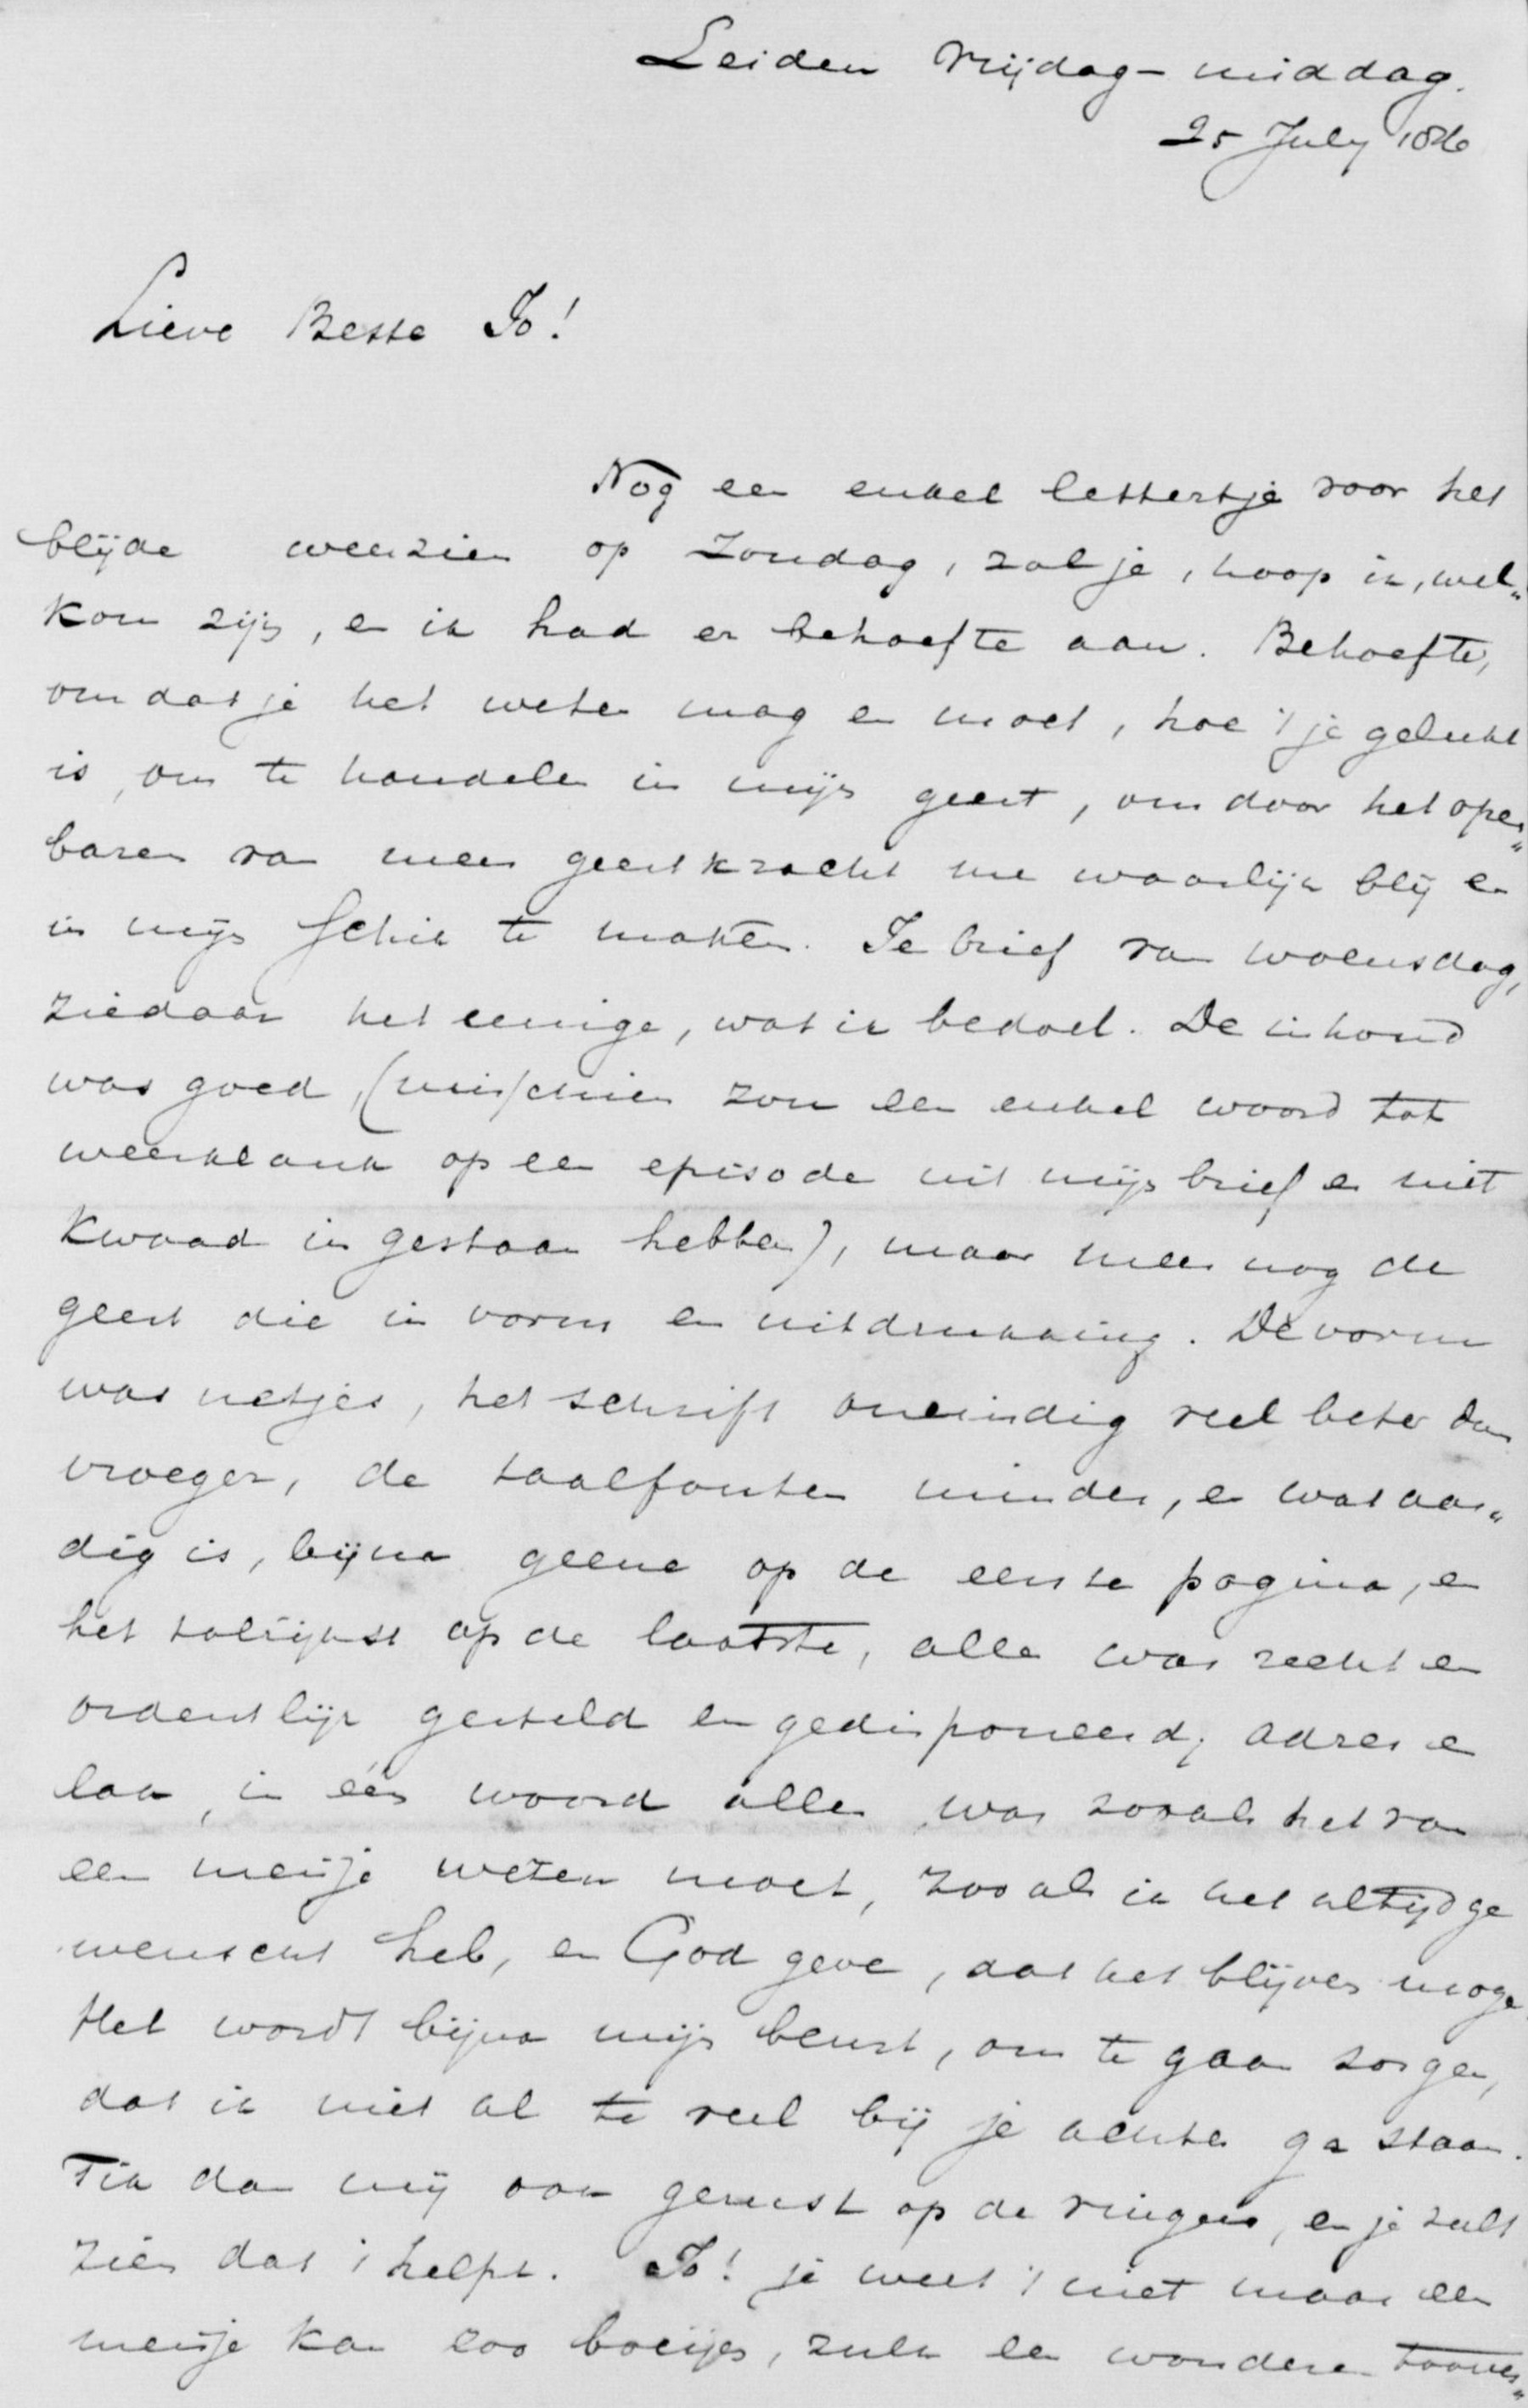 Leiden Vrijdag-middag.
25 July 1886
Lieve Beste Jo!
Nog een enkel lettertje voor het
blijde weerzien op Zondag, zal je, hoop ik, wel„
kom zijn, en ik had er behoefte aan. Behoefte,
omdat je het weten mag en moet, hoe 't je gelukt
is, om te handelen in mijn geest, om door het open„
baren van meer geestkracht me waarlijk blij en
in mijn schik te maken. Je brief van woensdag,
ziedaar het eenige, wat ik bedoel. De inhoud
was goed, (misschien zou een enkel woord tot
weerklank op een episode uit mijn brief er niet
kwaad in gestaan hebben), maar meer nog de
geest die in vorm en uitdrukking. De vorm
was netjes, het schrift oneindig veel beter dan
vroeger, de taalfouten minder, en wat aar„
dig is, bijna geene op de eerste pagina, en
het talrijkst op de laatste, alles was recht en
ordentlijk gesteld en gedisponeerd; adres en
lak, in één woord alles was zooals het van
een meisje wezen moet, zooals ik het altijd ge
wenscht heb, en God geve, dat het blijven moge
Het wordt bijna mijn beurt, om te gaan zorgen,
dat ik niet al te veel bij je achter ga staan.
Tik dan mij ook gerust op de vingers, en je zult
zien dat 't helpt. Jo! je weet 't niet maar een
meisje kan zoo boeijen, zulk een wonderen toover„